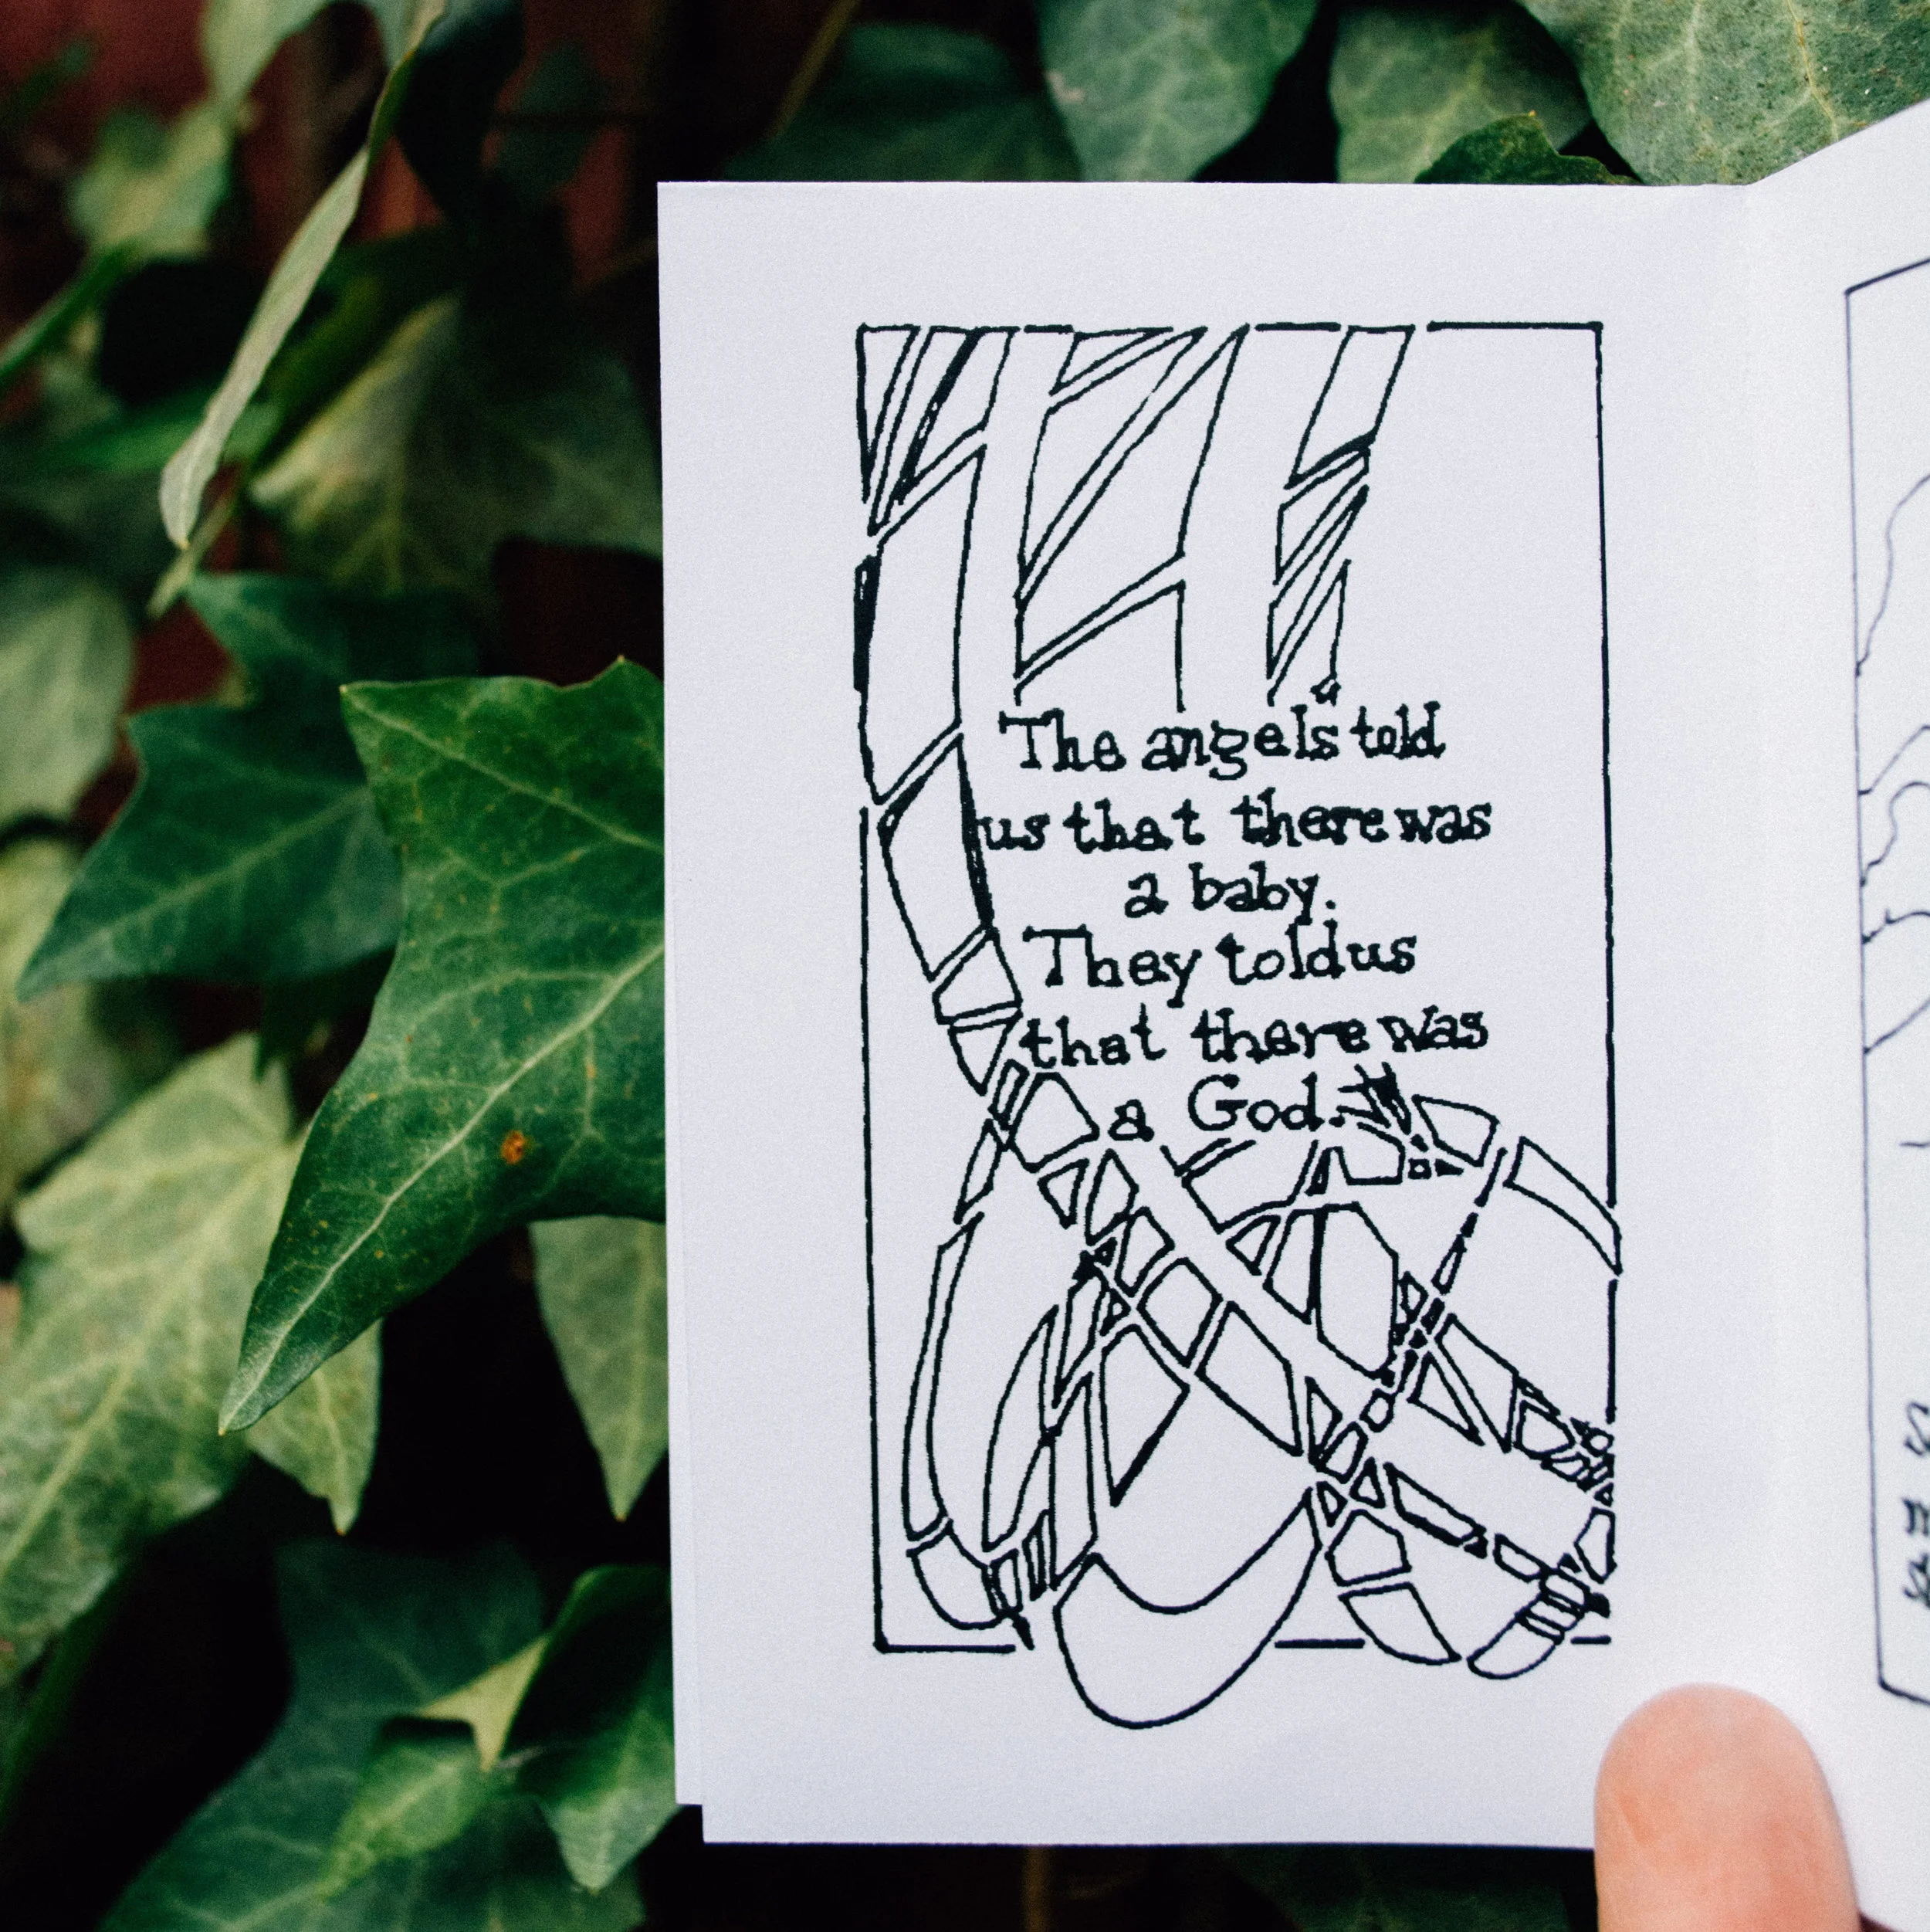 The angels told
us that there was
a baby.
They told us
that there was
a God.